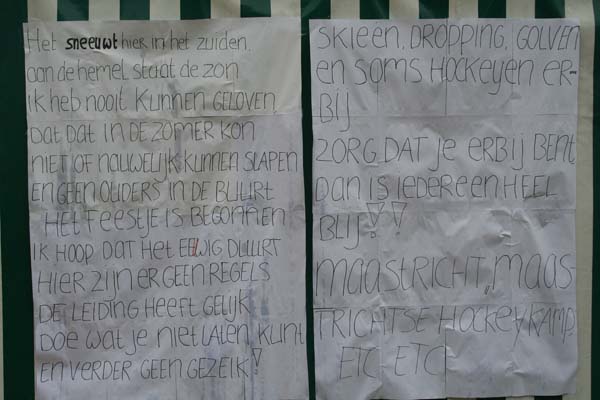 Het sneeuwt hier in het zuiden,
aan de hemel staat de zon
IK HEB NOOIT KUNNEN GELOVEN
DAT DAT IN DE ZOMER KON
NIET OF NAUWELIJK KUNNEN SLAPEN
EN GEEN OUDERS IN DE BUURT
HET FEESTJE IS BEGONNEN
IK HOOP DAT HET EEWIG DUURT
HIER ZIJN ER GEEN REGELS
DE LEIDING HEEFT GELIJK
DOE WAT JE NIET LATEN KUNT
EN VERDER GEEN GEZEIK!
SKIEEN, DROPPING, GOLVEN
EN SOMS HOCKEYEN ER-
BIJ
ZORG DAT je ERBIJ BENT
DAN IS IEDEREEN HEEL
BLIJ!!
MAASTRICHT, MAAS
TRICHTSE HOCKEYKAMP
ETC ETC